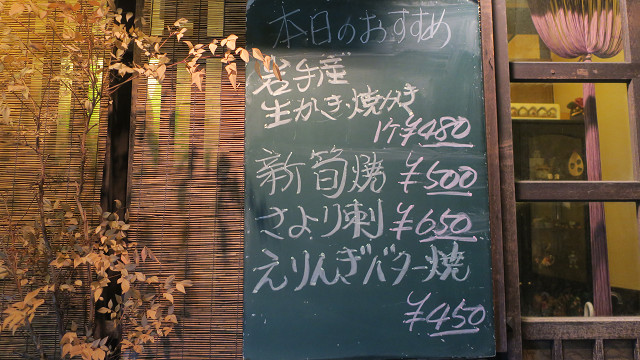 本日のおすすめ
岩手産
生かき・焼かき
1ケ¥480
新筍焼 ¥500
さより刺 ¥650
えりんぎバター焼
¥450